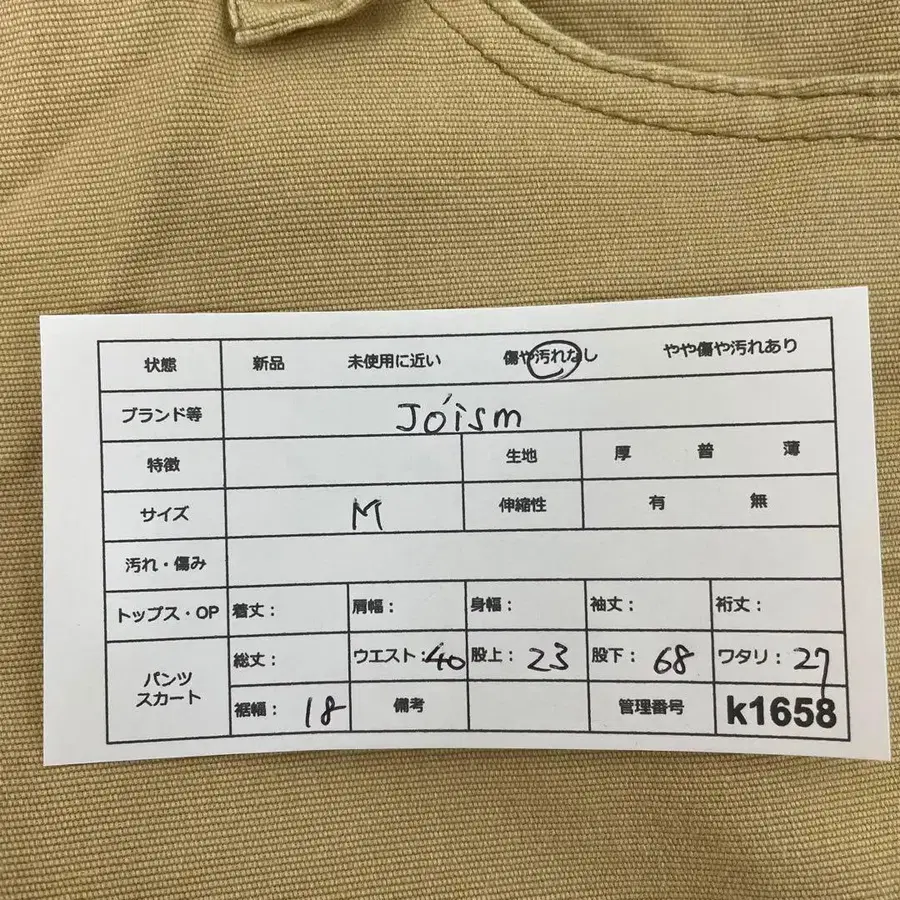 状態 新品 未使用に近い 傷や汚れなし やや傷や汚れあり
ブランド等 Jóism
特徴 生地 厚 普 薄
サイズ M 伸縮性 有 無
汚れ・傷み
トップス・OP 着丈： 肩幅： 身幅： 袖丈： 裄丈：
パンツ スカート 総丈： ウエスト：40 股上：23 股下：68 ワタリ：27
裾幅：18 備考 管理番号 k1658